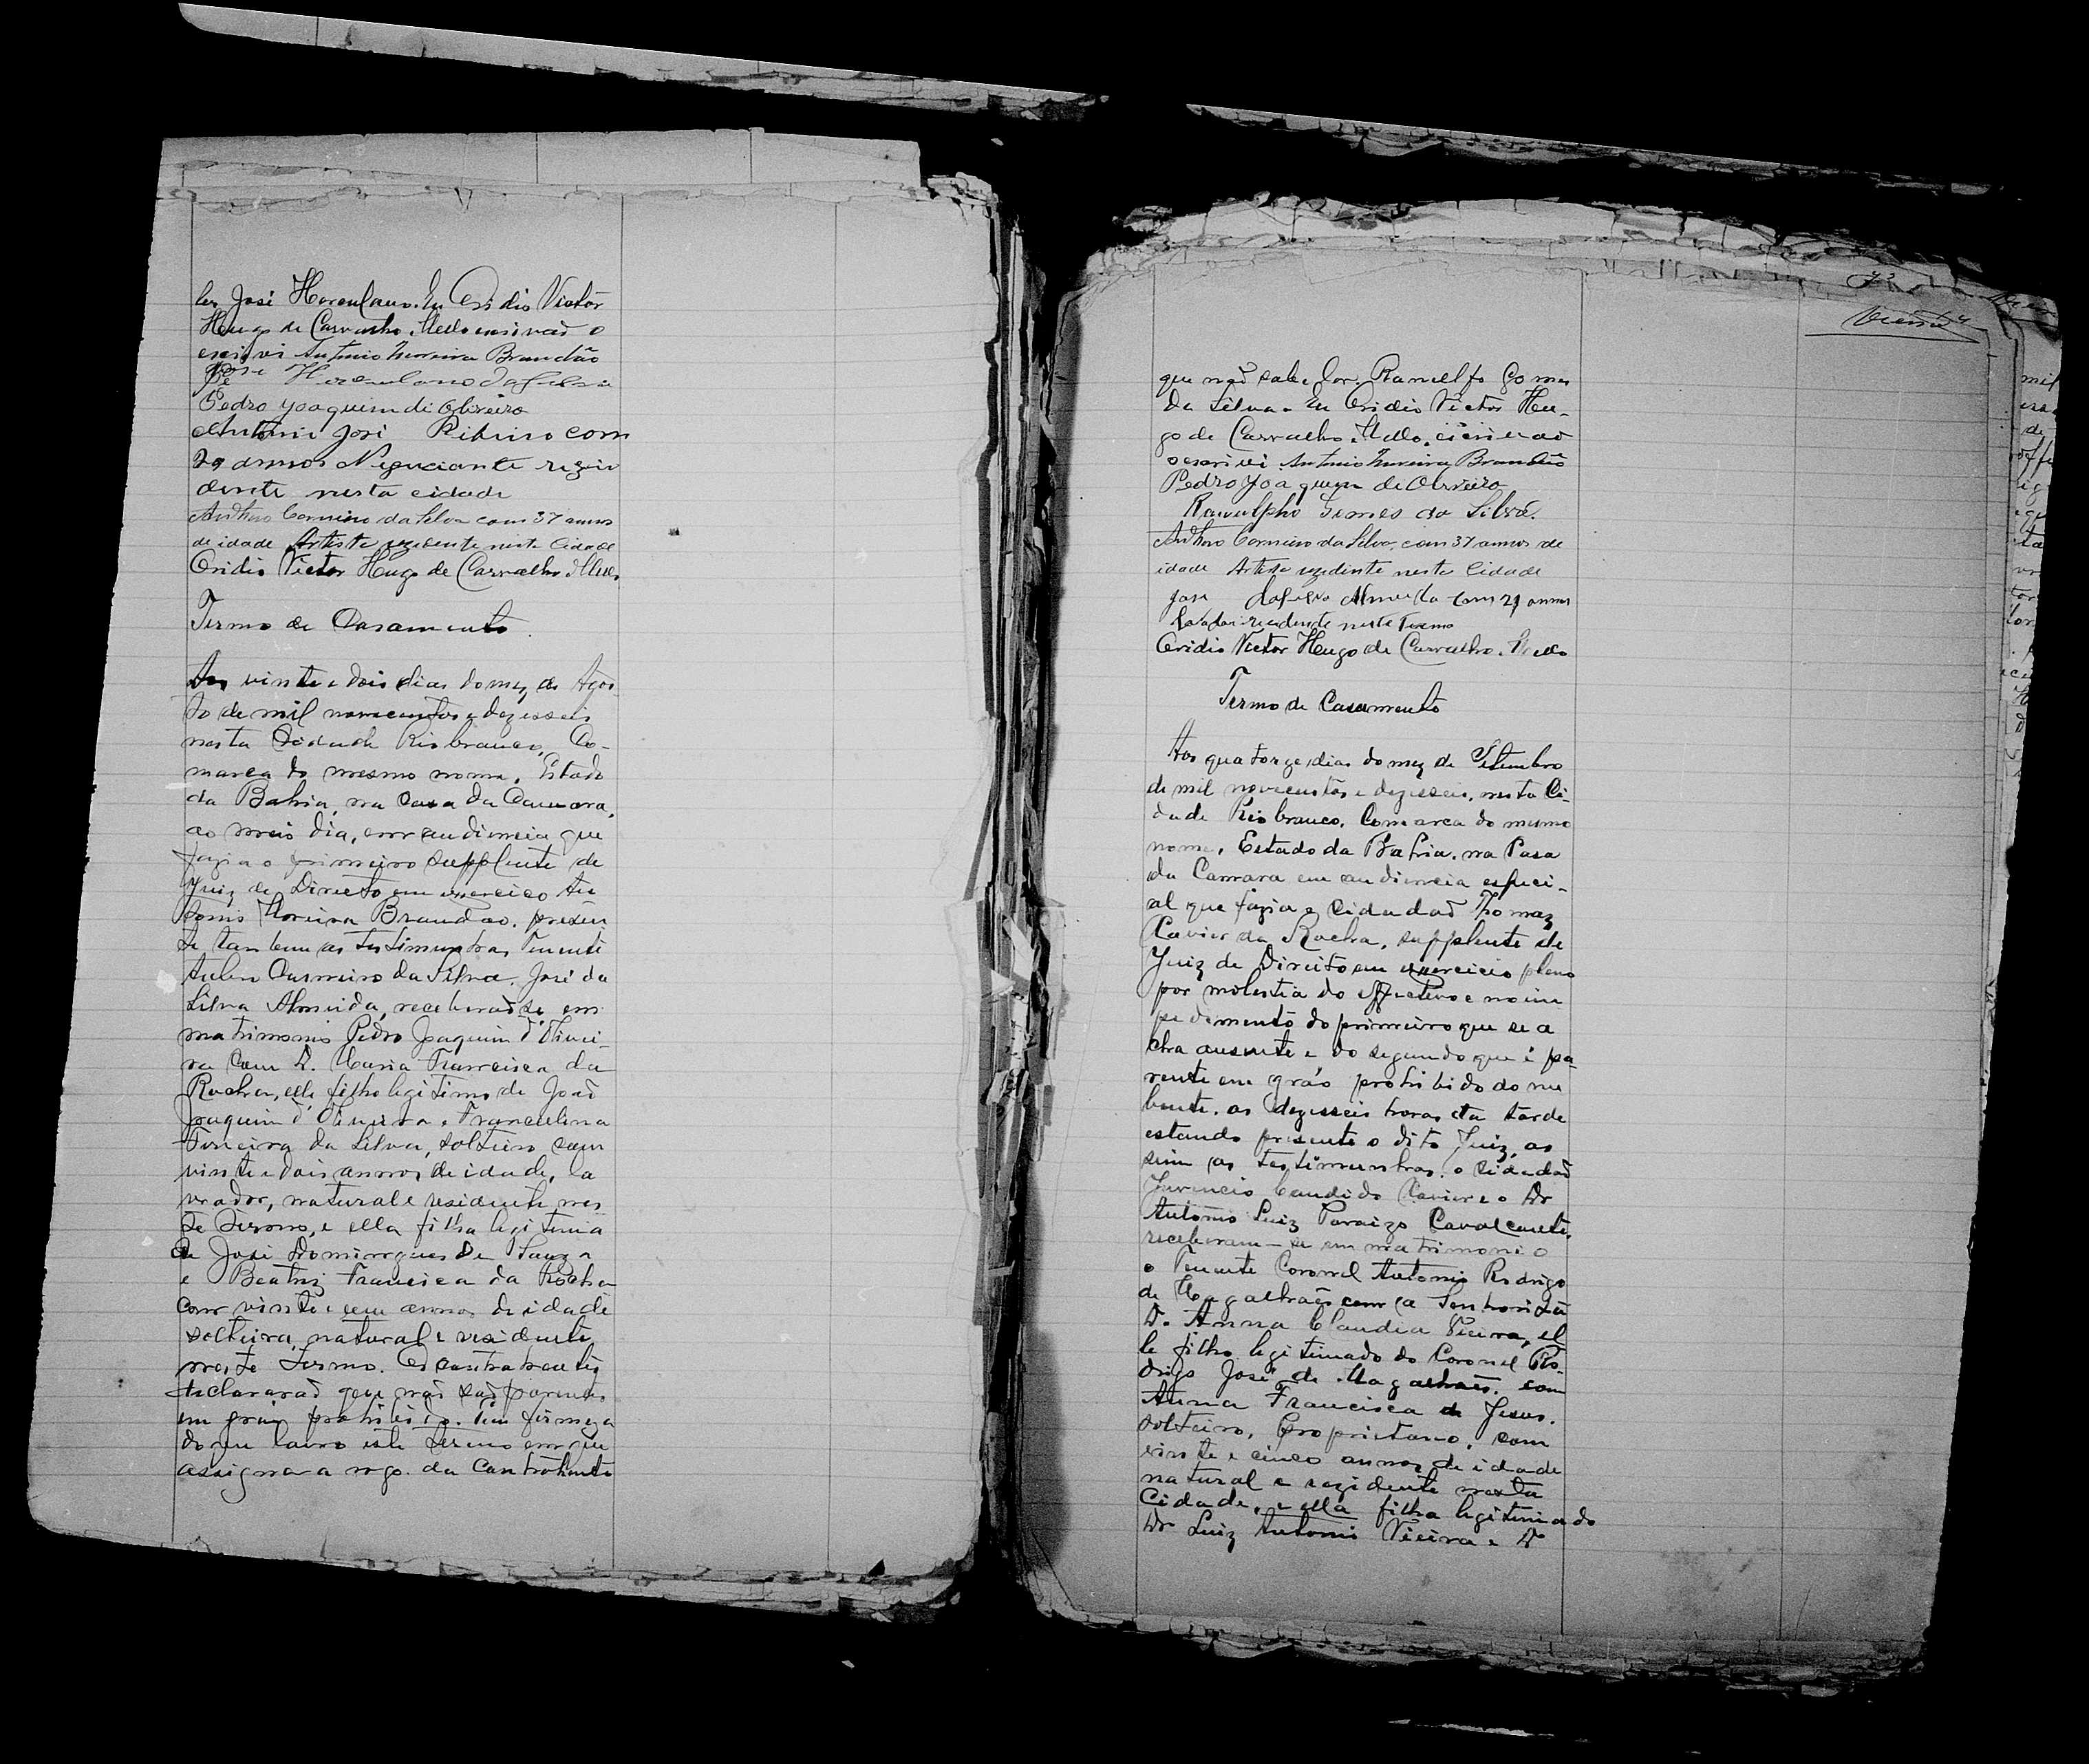 ler José Herculano. Eu Ovidio Victor
Hugo de Carvalho Mello escrivaõ o
escrivi Antonio Moreira Brandão
José Herculano da Silva
Pedro Joaquim di Oliveira
Antonio José Ribeiro com
29 annos Negociante rezin
dente nesta cidade
Arthur Carneiro da Silva com 37 annos
de idade Artista rezidente nesta Cidade
Ovidio Victor Hugo de Carvalho Mello
Termo de Casamento
Aos vinte e dois dias do mez de Agos
to de mil novecentos e dezesseis
nesta Cidade Rio branco, Co-
marca do mesmo nome, Estado
da Bahia, na Casa da Camara,
ao meio dia, em audiencia que
fazia o primeiro supplente de
Juiz de Direito em exercico An
tonio Moreira Brandão, presen
te tambem as testimunhas Tenente
Carneiro da Silva, José da
Silva Almeida, receberaõ se em
matrimonio Pedro Joaquim d'Olivei-
ra com D. Maria Francisca da
Rocha, elle filho legitimo de Joaõ
Joaquim d'Oliveira e Franculina
Ferreira da Silva, solteiro com
vinte e dois annos de idade, la
vrador, natural e residente nes
te Termo, e ella filha legitima
de José Domingues de Souza
e Beatriz Francisca da Rocha
com vinte e um annos de idade
solteira, natural e residente
neste Termo. Os contrahentes
declararaõ que naõ saõ parentes
em gráu prohibido. Em firmeza
do que lavro este termo em que
assigna a rogo da Contrahente
73
que naõ sabe ler Ranulfo Gomes
da Silva. Eu Ovidio Victor Hu-
go de Carvalho Mello, escrivaõ
o escrivi Antonio Moreira Brandão
Pedro Joaquim de Oliveira
Ranulpho Gomes da Silva.
Arthur Carneiro da Silva, com 37 annos de
idade Artista rezidente nesta Cidade
José da Silva Almeida com 21 annos
lavador rezidente neste Termo
Ovidio Victor Hugo de Carvalho Mello
Termo de Casamento
Aos quatorze dias do mez de Setembro
de mil novecentos e dezesseis, nesta Ci-
dade Rio branco, Comarca do mesmo
nome, Estado da Bahia, na Casa
da Camara em audiencia especi-
al que fazia o cidadaõ Thomaz
Xavier da Rocha, supplente de
Juiz de Direito em exercicio pleno
por molestia do effectivo e no im
pedimento do primeiro que se a
cha ausente e do segundo que é pa-
rente em gráo prohibido do nu
bente, as dezesseis horas da tarde
estando presente o dito Juiz, as
sim as testimunhas o cidadaõ
Juvencio Candido Xavier e o Dr
Antonio Luiz Paraizo Cavalcante,
receberam-se em matrimonio
o Tenente Coronel Antonio Rodrigo
de Magalhães com a Senhorita
D. Anna Claudia Vieira, el
le filho legitimado do Coronel Ro-
drigo José de Magalhães, com
Anna Francisca de Jesus,
solteiro, Proprietario, com
vinte e cinco annos de idade
natural e rezidente nesta
Cidade, e ella filha legitima do
Dr Luiz Antonio Vieira e D